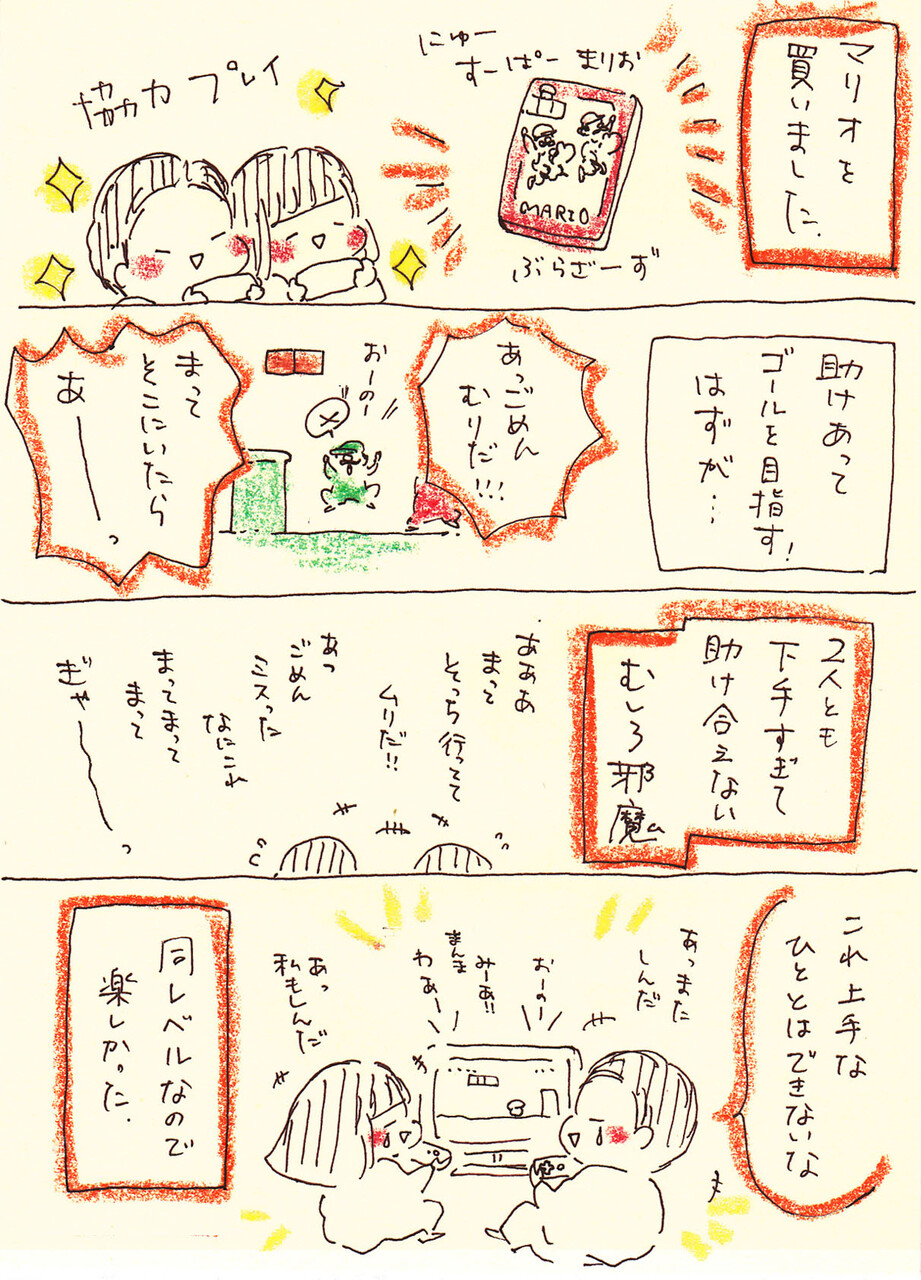 マリオを
買いました.
にゅー
すーぱー まりお
MARIO
ぶらざーず
協力プレイ
助けあって
ゴールを目指す!
はずが…
あっごめん
むりだ!!!
おーのー
まって
そこにいたら
あーーっ
2人とも
下手すぎて
助け合えない
むしろ邪魔
あああ
まって
そっち行ってて
ムリだ!!
あっ
ごめん
ミスった
なにこれ
まってまって
まって
ぎゃーーっ
これ上手な
ひととはできないな
あっまた
しんだ
おーのー
みーあ!!
まんま
わあー
あっ
私もしんだ
同レベルなので
楽しかった.